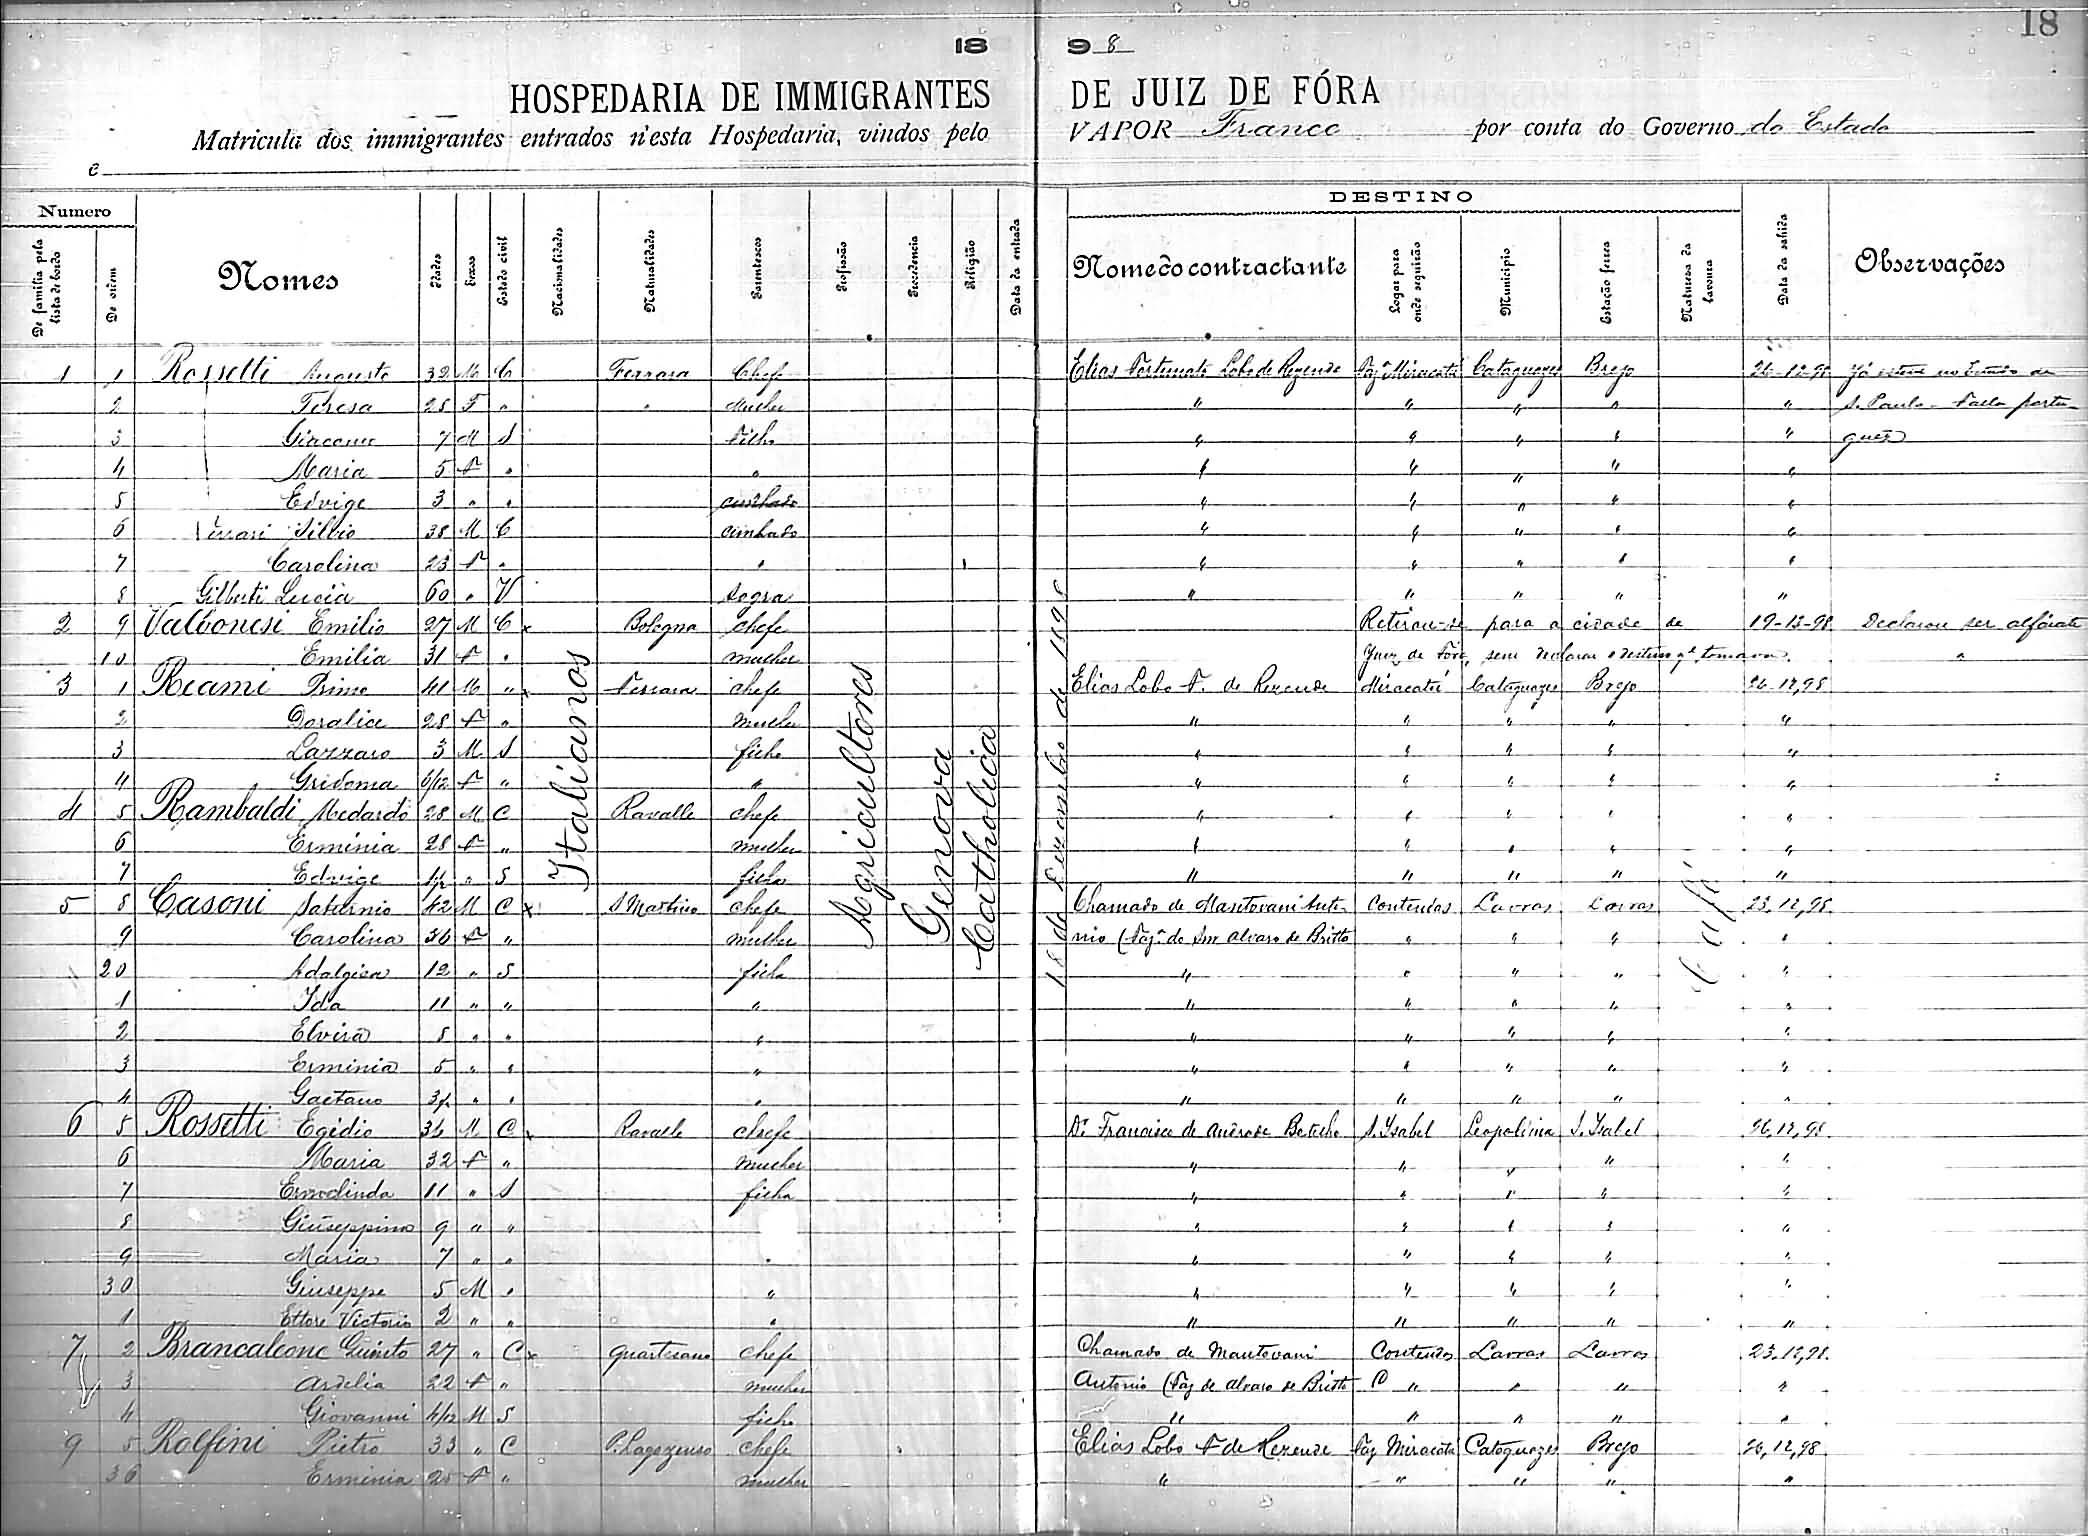 18
18 98
HOSPEDARIA DE IMMIGRANTES DE JUIZ DE FÓRA
Matricula dos immigrantes entrados n'esta Hospedaria, vindos pelo VAPOR Franca por conta do Governo do Estado
e
Numero DESTINO
De familia pela lista de bordo De ordem Nomes Idades Sexos Estado civil Nacionalidades Naturalidades Parentescos Profissão Procedencia Religião Data da entrada Nome do contractante Logar para onde seguirão Municipio Estação ferrea Natureza da lavoura Data da sahida Observações
1 1 Rossetti Augusto 32 M C Ferrara Chefe Elias Fortunato Lobo de Rezende Faz Miracatú Cataguazes Brejo 26-12-98 Já esteve no Estado de
2 Teresa 28 F " " Mulher " " " " " S. Paulo - Falla portu-
3 Giacomo 7 M S Filho " " " " " guez
4 Maria 5 F " " " " " " "
5 Edvige 3 " " cunhado " " " " "
6 Silvio 38 M C cunhado " " " " "
7 Carolina 23 F " " " " " " "
8 Gilberti Lucia 60 " V Sogra " " " " "
2 9 Valbonesi Emilio 27 M C x Bologna chefe Retirou-se para a cidade de 19-12-98 Declarou ser alfaiate
10 Emilia 31 F " mulher Juiz de Fóra, sem declarar o destino q' tomava. "
3 1 Reami Primo 41 M " x Ferrara chefe Elias Lobo F. de Rezende Miracatú Cataguazes Brejo 26-12,98
2 Doralice 28 F " mulher " " " " "
3 Lazzaro 3 M S filho " " " " "
4 Gridoma 6/12 F " " " " " " "
4 5 Rambaldi Medardo 28 M C Ravalle chefe " " " " "
6 Erminia 28 F " mulher " " " " "
7 Edvige " S filha " " " " "
5 8 Casoni Saturnio 42 M C x S Martino chefe Chamado de Mantovani Anto- Contendas Lavras Lavras 23,12,98
9 Carolina 36 F " mulher nio (Faz.ª do Snr Alvaro de Britto " " " "
20 Adalgisa 12 " S filha " " " " "
1 Ida 11 " " " " " " " "
2 Elvira 8 " " " " " " " "
3 Erminia 5 " " " " " " " "
4 Gaetano " " " " " " " "
6 5 Rossetti Egidio 36 M C x Ravalle chefe Dr Francisco de Andrade Botelho S. Ysabel Leopoldina S. Isabel 26,12,98
6 Maria 32 F " mulher " " " " "
7 Ermelinda 11 " S filha " " " " "
8 Giuseppina 9 " " " " " " "
9 Maria 7 " " " " " " " "
30 Giuseppe 5 M " " " " " " "
1 Ettore Victorio 2 " " " " " " " "
7 2 Brancaleone Guinto 27 " C x Quartesana chefe Chamado de Mantovani Contendas Lavras Lavras 23,12,98.
3 Ardelia 22 F " mulher Antonio (Faz de Alvaro de Britto C " " " "
4 Giovanni 4/12 M S filho " " " " "
9 5 Rolfini Pietro 33 " C chefe Elias Lobo F de Rezende Faz Miracatú Cataguazes Brejo 26,12,98
36 Erminia 25 F " mulher " " " " "
Italianos
Agricultores
Genova
Catholica
18 de Dezembro de 1898
Café